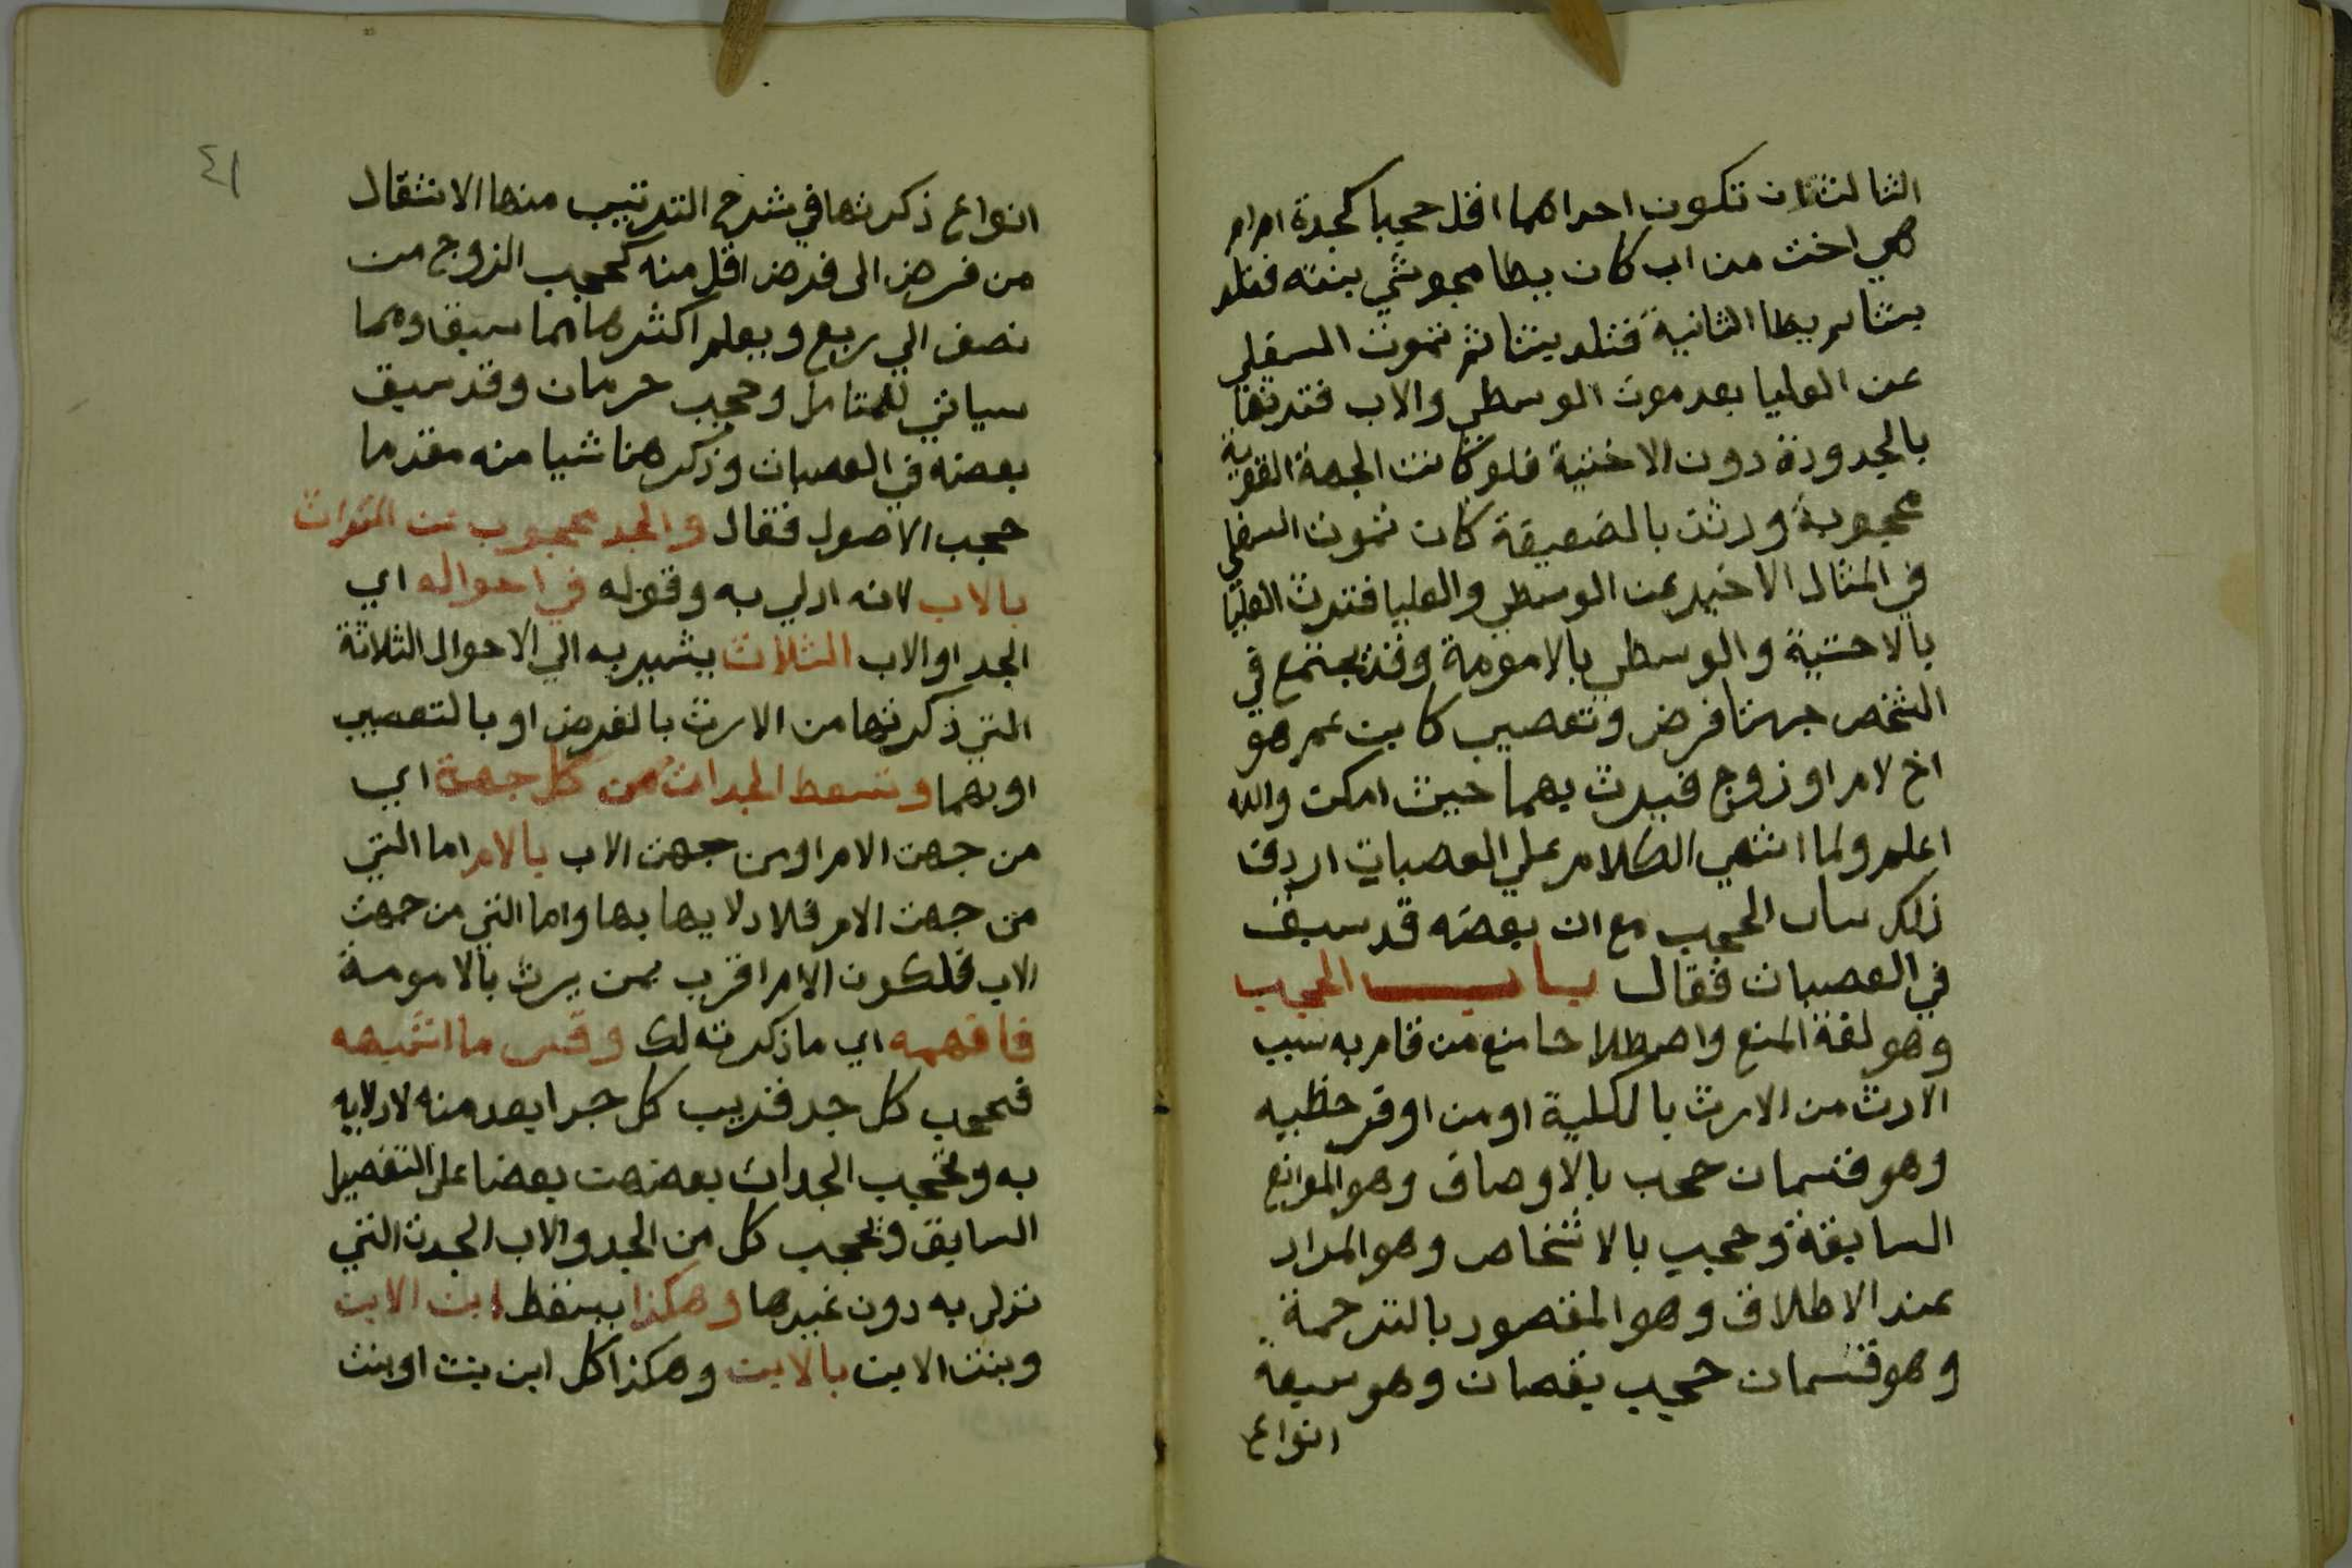 الثالث ان تكون احداهما اقل حجبا كجدة ام ام
هي اخت من اب كان يطا مجوسي بنته فتلد
بنتا ثم يطا الثانية فتلد بنتا ثم تموت السفلي
عن العليا بعد موت الوسطي والاب فترثها
بالجدودة دون الاختية فلو كانت الجهة القوية
محجوبة ورثت بالضعيفة كان تموت السفلي
في المثال الاخير عن الوسطي والعليا فترث العليا
بالاختية والوسطي بالامومة وقد يجتمع في
الشخص جهتا فرض وتعصيب كابن عم هو
اخ لام او زوج فيرث بهما حيث امكن والله
اعلم ولما انتهي الكلام علي العصبات اردف
ذلك بباب الحجب مع ان بعضه قد سبق
في العصبات فقال باب الحجب
وهو لغة المنع واصطلاحا منع من قام به سبب
الارث من الارث بالكلية او من اوفر حظيه
وهو قسمان حجب بالاوصاف وهو الموانع
السابقة وحجب بالاشخاص وهو المراد
عند الاطلاق وهو المقصود بالترجمة
وهو قسمان حجب نقصان وهو سبعة
انواع
٤١
انواع ذكرتها في شرح الترتيب منها الانتقال
من فرض الى فرض اقل منه كحجب الزوج من
نصف الي ربع ويعلم اكثرها مما سبق ومما
سياتي للمتامل وحجب حرمان وقد سبق
بعضه في العصبات وذكر هنا شيا منه مقدما
حجب الاصول فقال والجد محجوب عن الميراث
بالاب لانه ادلي به وقوله في احواله اي
الجد او الاب الثلاث يشير به الي الاحوال الثلاثة
التي ذكرتها من الارث بالفرض او بالتعصيب
او بهما وتسقط الجدات من كل جهة اي
من جهت الام او من جهت الاب بالام اما التي
من جهت الام فلادلايها بها واما التي من جهت
الاب فلكون الام اقرب ممن يرث بالامومة
فافهمه اي ما ذكرته لك وقس ما اشبهه
فحجب كل جد قريب كل جد ابعد منه لادلايه
به وتحجب الجدات بعضهن بعضا علي التفصيل
السابق وتحجب كل من الجد والاب الجدت التي
تدلي به دون غيرها وهكذا يسقط ابن الابن
وبنت الابن بالابن وهكذا كل ابن بنت او بنت